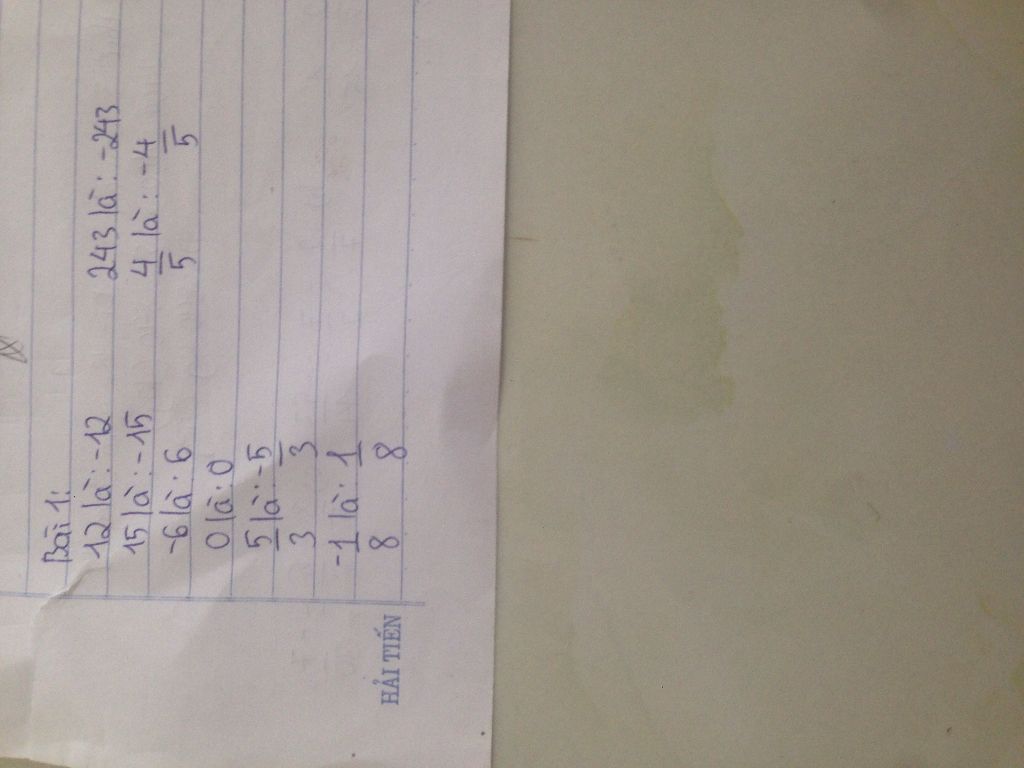 Bài 1:
12 là: -12 243 là: -243
15 là: -15 4/5 là: -4/5
-6 là: 6
0 là: 0
5/3 là: -5/3
-1/8 là: 1/8
HẢI TIẾN